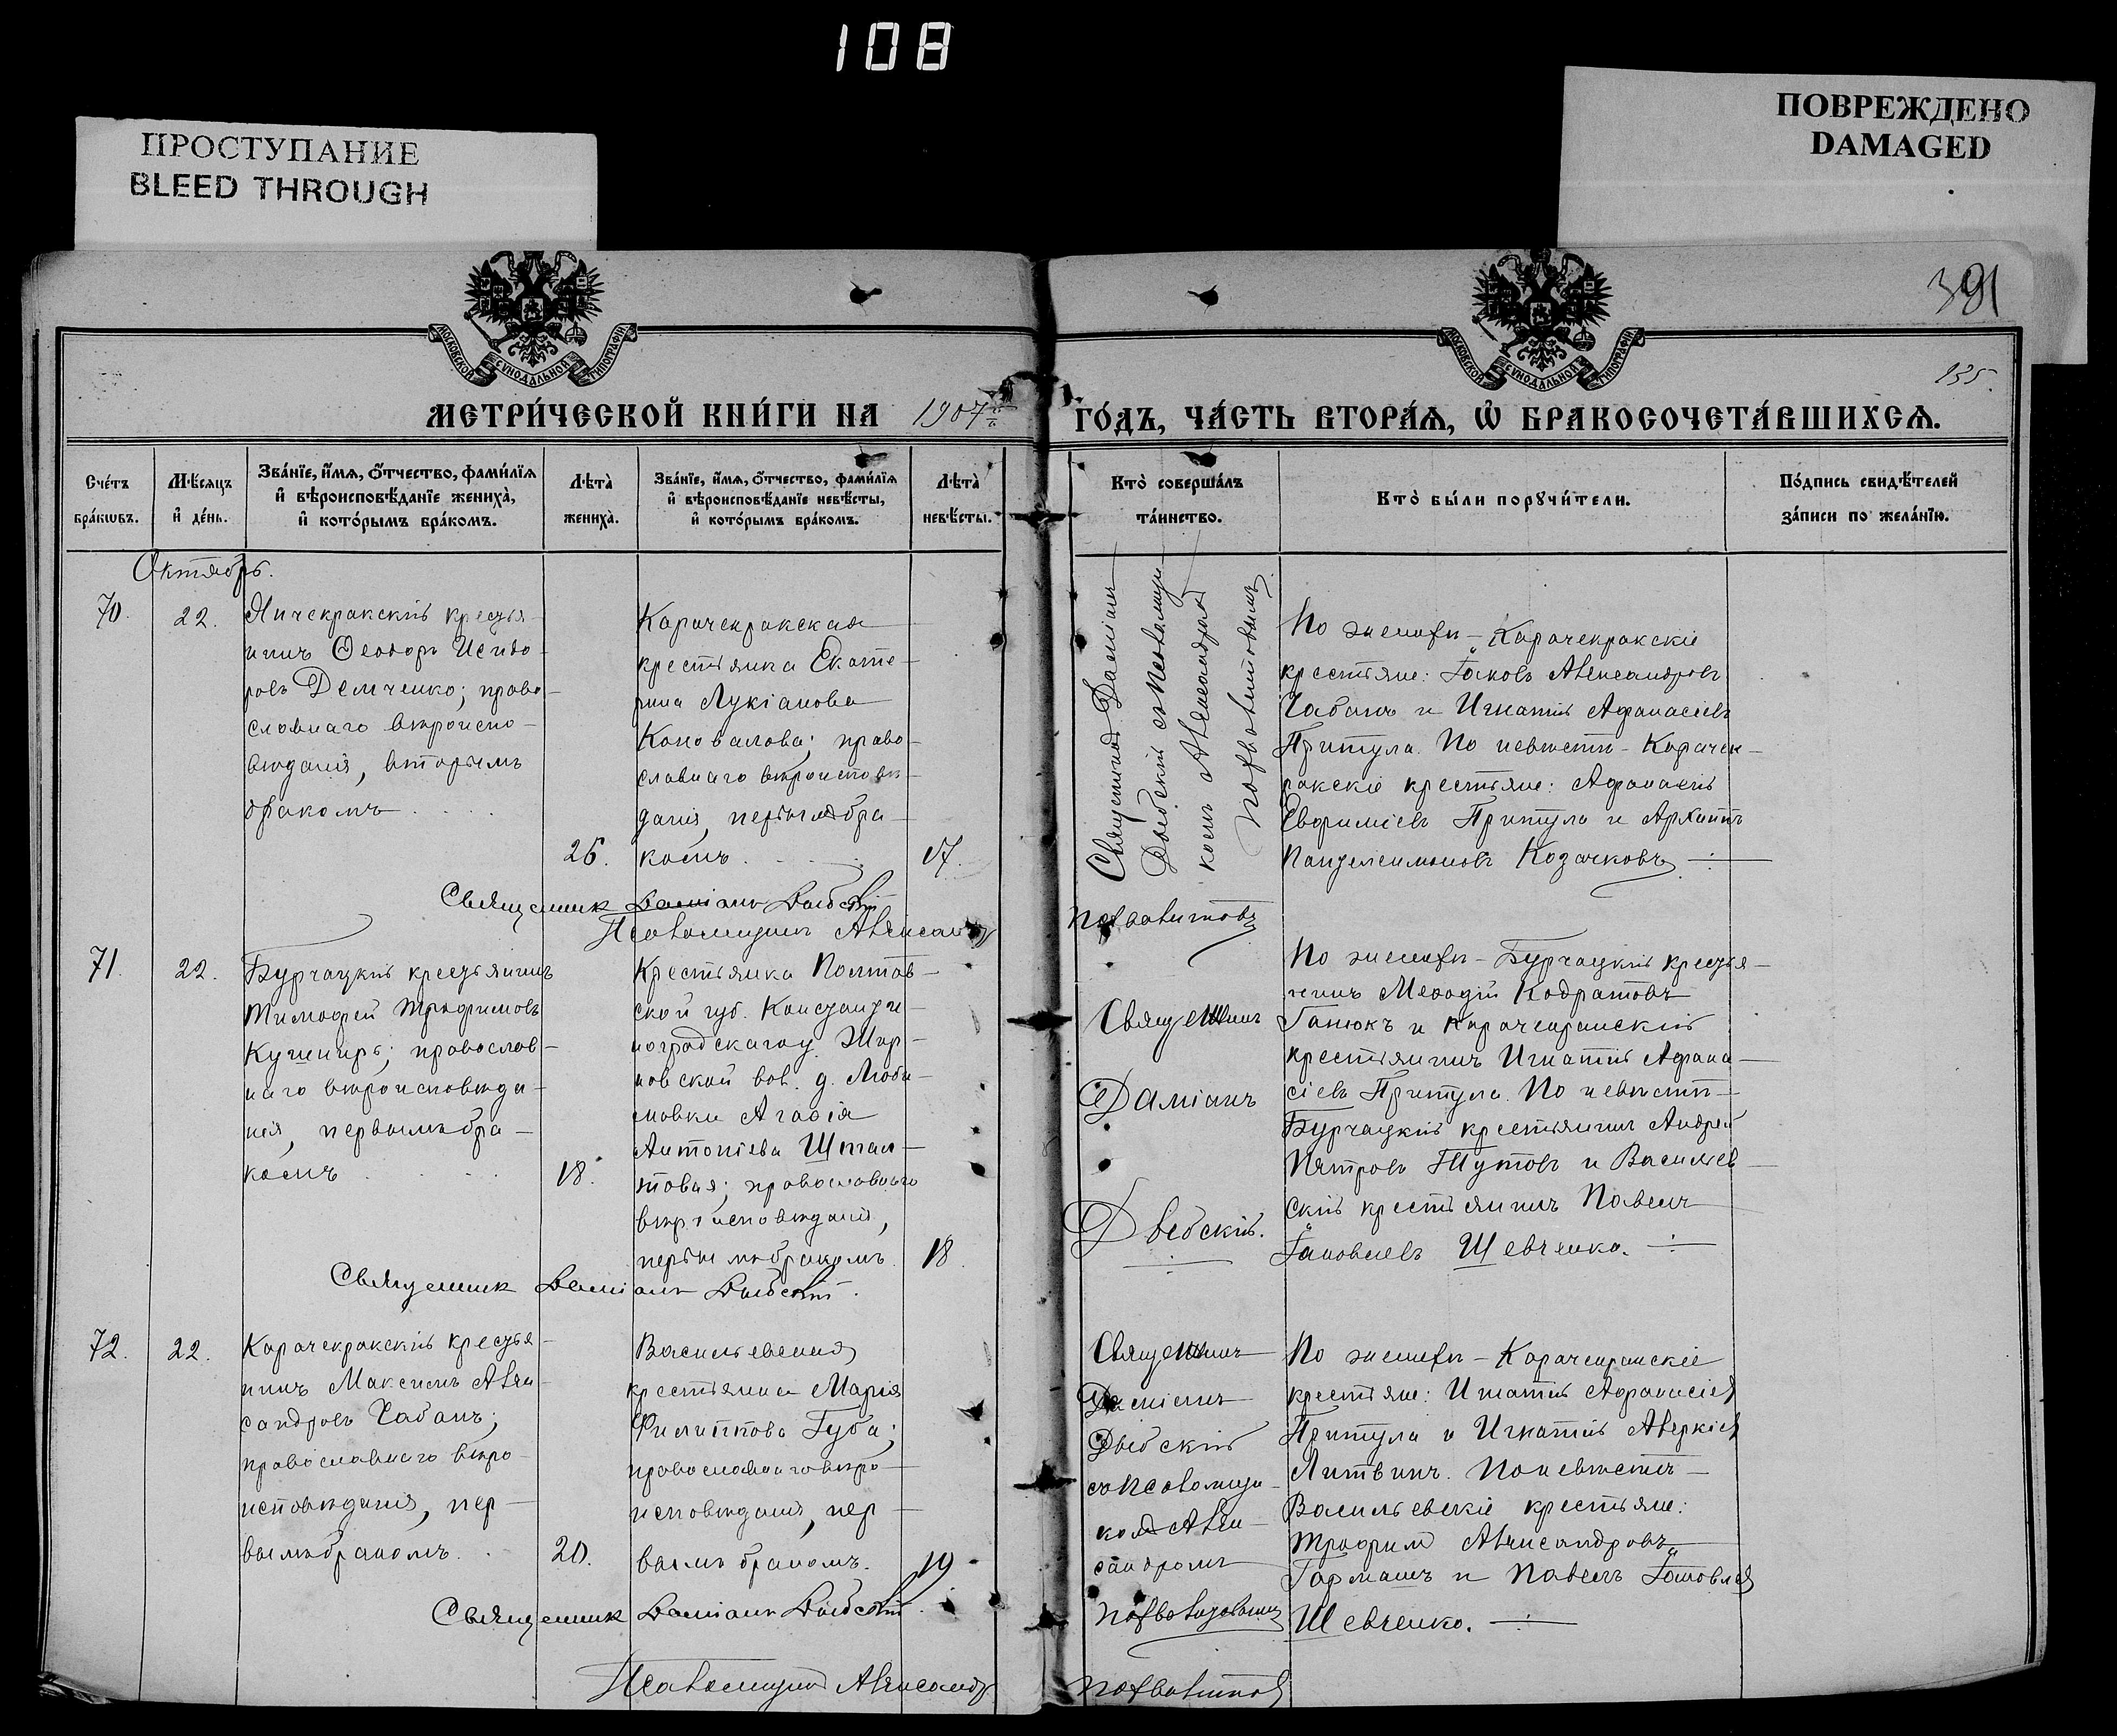 108
ПРОСТУПАНИЕ
BLEED THROUGH
ПОВРЕЖДЕНО
DAMAGED
391
135.
МОСКОВСКОЙ СѴНОДАЛЬНОЙ ТИПОГРАФІИ
МОСКОВСКОЙ СѴНОДАЛЬНОЙ ТИПОГРАФІИ
МЕТРИ́ЧЕСКОЙ КНИ́ГИ НА 1907й
ГО́ДЪ, ЧА́СТЬ ВТОРА́Ѧ, Ѽ БРАКОСОЧЕТА́ВШИХСѦ.
Сче́тъ
бра́кѡвъ.
Мѣ́сяцъ
и҆ де́нь.
Зва́нїе, и҆́мѧ, ѻ҆́тчество, фами́лїѧ
и҆ вѣроисповѣ́данїе жениха̀,
и҆ кото́рымъ бра́комъ.
Лѣта̀
жениха̀.
Зва́нїе, и҆́мѧ, ѻ҆́тчество, фами́лїѧ
и҆ вѣроисповѣ́данїе невѣ́сты,
и҆ кото́рымъ бра́комъ.
Лѣта̀
невѣ́сты.
Кто̀ соверша́лъ
та́инство.
Кто̀ бы́ли порꙋчи́тели.
По́дпись свидѣ́телей
за́писи по жела́нїю.
Октябрь.
70.
22.
Янчекракскій крестья-
нинъ Ѳеодоръ Исидо-
ровъ Демченко; право-
славнаго вѣроиспо-
вѣданія, вторымъ
бракомъ
26.
Карачекракская
крестьянка Екате-
рина Лукіанова
Коновалова; право-
славнаго вѣроисповѣ-
данія, первымъ бра-
комъ.
17.
Священникъ Даміанъ
Дыбскій съ псаломщи-
комъ Александромъ
Похвалитовымъ
По женихѣ - Карачекракскіе
крестьяне: Іаковъ Александровъ
Чабанъ и Игнатій Аѳанасіевъ
Притула. По невѣстѣ - Карачек-
ракскіе крестьяне: Аѳанасій
Евѳиміевъ Притула и Архиппъ
Пантелеимоновъ Козачковъ.
Священник Даміанъ Дыбскій
Псаломщикъ Александръ
Похвалитовъ
71.
22.
Бурчацкій крестьянинъ
Тимоѳей Трофимовъ
Кушниръ; православ-
наго вѣроисповѣда-
нія, первымъ бра-
комъ
18.
Крестьянка Полтав-
ской губ. Константи-
ноградскаго у. Жир-
ковской вол. д. Люби-
мовки Агаѳія
Антоніева Штан-
товая; православнаго
вѣроисповѣданія,
первымъ бракомъ.
18.
Священникъ
Даміанъ
Дыбскій.
По женихѣ - Бурчацкій крестья-
нинъ Меѳодій Кодратовъ
Ганюкъ и Карачекракскій
крестьянинъ Игнатій Аѳана-
сіевъ Притула. По невѣстѣ -
Бурчацкій крестьянинъ Андрей
Петровъ Шутовъ и Васильев-
скій крестьянинъ Павелъ
Іаковлевъ Шевченко.
Священник Даміанъ Дыбскій.
72.
22.
Карачекракскій крестья-
нинъ Максимъ Алек-
сандровъ Чабанъ;
православнаго вѣро-
исповѣданія, пер-
вымъ бракомъ.
20.
Васильевская
крестьянка Марія
Филиппова Губа;
православнаго вѣро-
исповѣданія, пер-
вымъ бракомъ.
19
Священникъ
Даміанъ
Дыбскій
съ псаломщи-
комъ Алек-
сандромъ
По женихѣ - Карачекракскіе
крестьяне: Игнатій Аѳанасіевъ
Притула и Игнатій Аверкіевъ
Литвинъ. По невѣстѣ -
Васильевскіе крестьяне:
Трофимъ Александровъ
Гармашъ и Павелъ Іаковлевъ
Шевченко.
Священник Даміанъ Дыбскій.
Псаломщикъ Александръ
Похвалитовъ